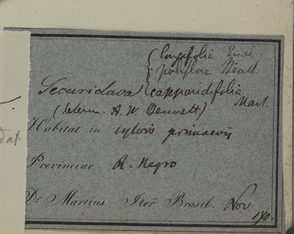 longifolia
Securidaca
capparidifolia Mart
(determ. A. W. Bennett)
Habitat in sylvis primaevis
Provinciae R. Negro
Dr Martius, Iter Brasil. Nov